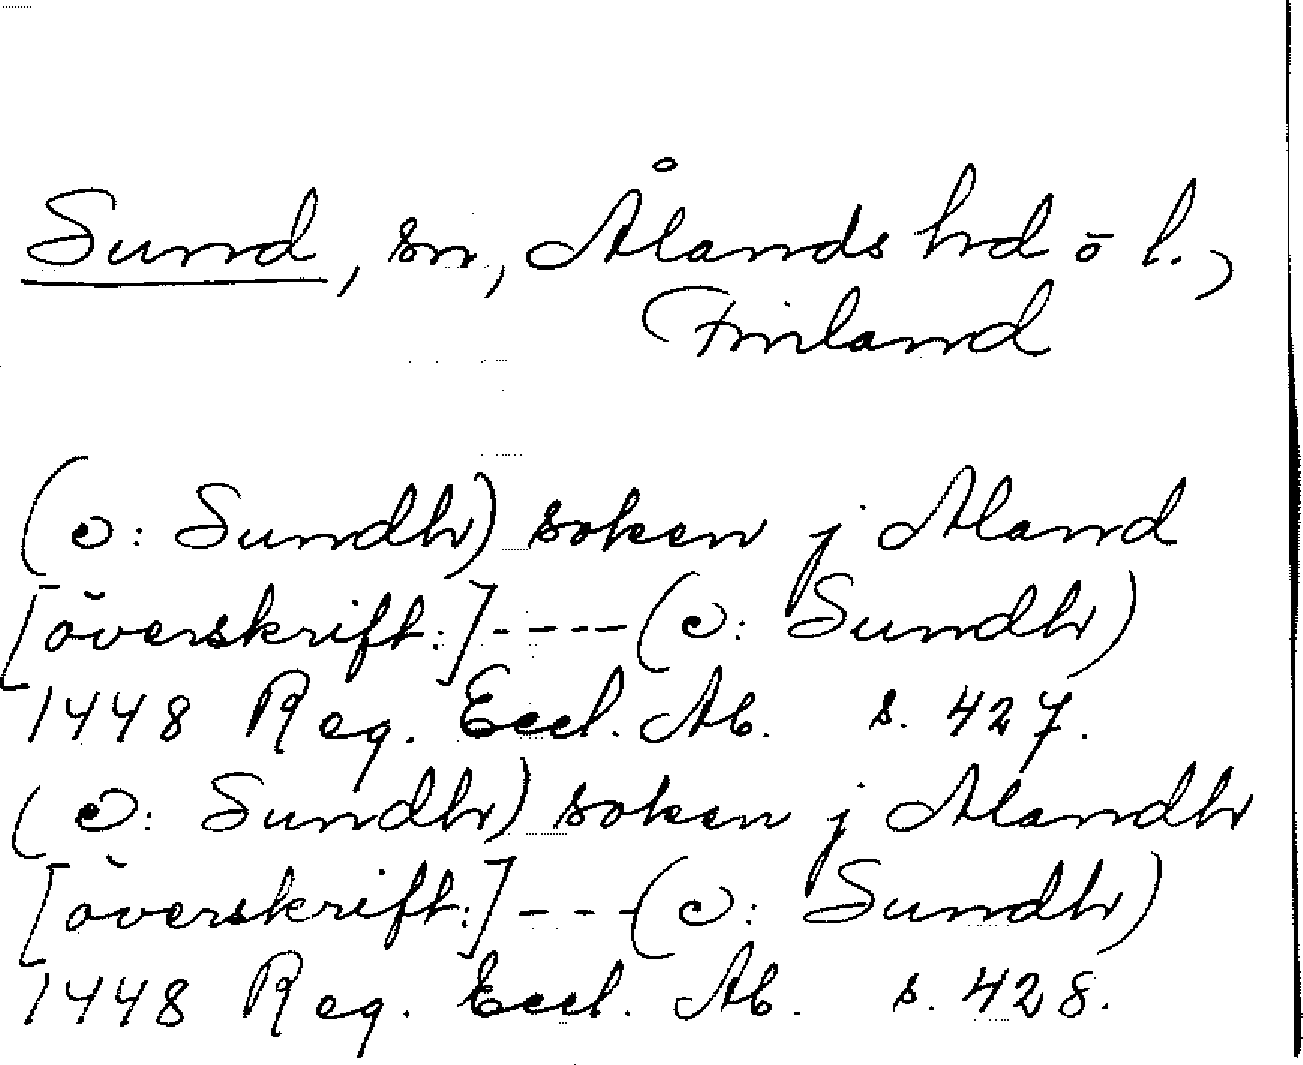 Sund, sn, Ålands hd ö l.,
Finland
(ɔ: Sundh) soken j Aland
[överskrift:] ---- (ɔ: Sundh)
1448 Reg. Eccl. Ab. s. 427.
(ɔ: Sundh) soken j Alandh
[överskrift:] --- (ɔ: Sundh)
1448 Reg. Eccl. Ab. s. 428.